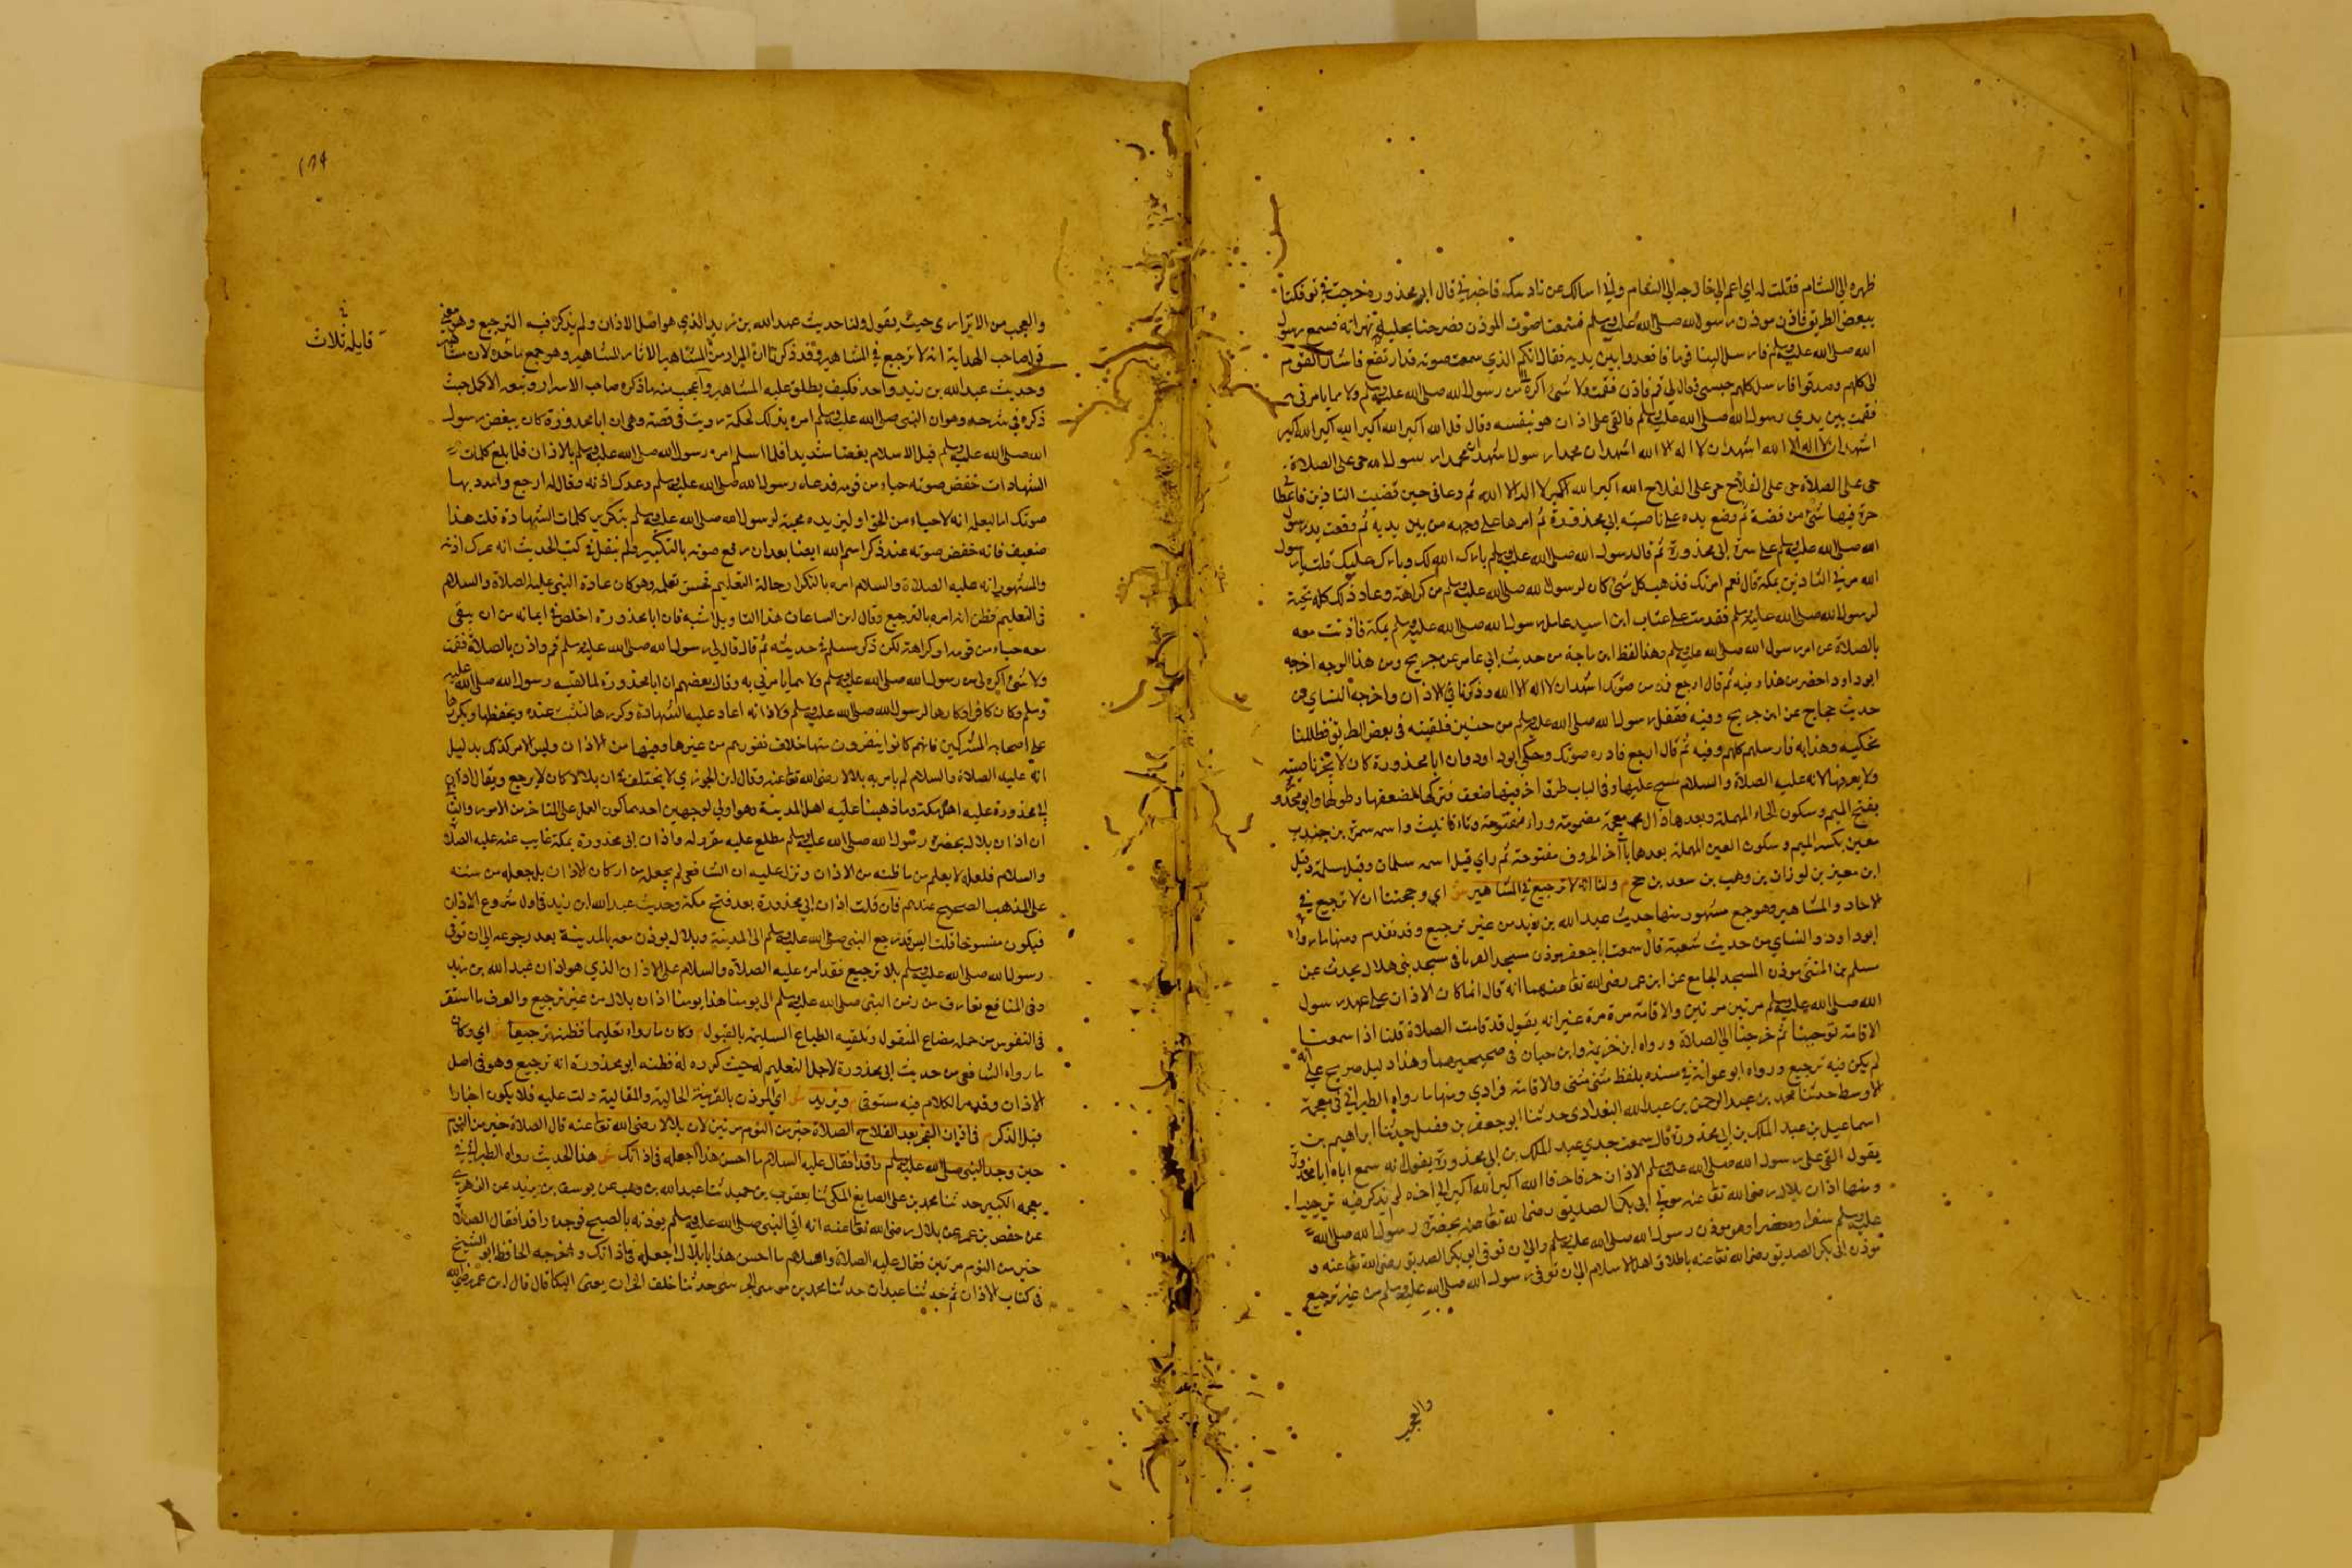 ظهره الي الشام فقلت له اي اعم اني خارج الي الشام واني اسالك عن تاذينك فاخبرني قال ابو محذورة خرجت في نفر فكنا
ببعض الطريق فاذن موذن رسول الله صلى الله عليه وسلم فسمعنا صوت الموذن فصرخنا نحكيه نهزا به فسمع رسول
الله صلى الله عليه وسلم فارسل الينا قوما فاقعدونا بين يديه فقال ايكم الذي سمعت صوته قد ارتفع فاشار القوم
الى كلهم وصدقوا فارسل كلهم وحبسني وقال لي قم فاذن فقمت ولا شئ اكره من رسول الله صلى الله عليه وسلم ولا مما يامرني به
فقمت بين يدي رسول الله صلى الله عليه وسلم فالقى على اذان هو بنفسه وقال قل الله اكبر الله اكبر الله اكبر الله اكبر
اشهد ان لا اله الا الله اشهد ان لا اله الا الله اشهد ان محمدا رسول اشهد ان محمدا رسول الله حي على الصلاة
حي على الصلاة حي على الفلاح حي على الفلاح الله اكبر الله اكبر لا اله الا الله ثم دعاني حين قضيت التاذين فاعطاني
صرة فيها شئ من فضة ثم وضع يده على ناصية ابي محذورة ثم امرها على وجهه من بين يديه ثم وقعت يد رسول
الله صلى الله عليه وسلم على سرة ابي محذورة ثم قال رسول الله صلى الله عليه وسلم بارك الله لك وبارك عليك قلت يا رسول
الله مرني التاذين بمكة قال نعم امرتك فذهب كل شئ كان لرسول الله صلى الله عليه وسلم من كراهة وعاد ذلك كله محبة
لرسول الله صلى الله عليه وسلم فقدمت على عتاب ابن اسيد عامل رسول الله صلى الله عليه وسلم بمكة فاذنت معه
بالصلاة عن امر رسول الله صلى الله عليه وسلم وهذا لفظ ابن ماجة من حديث ابي عامر عن جريج ومن هذا الوجه اخرجه
ابو داود اخصر من هذا وفيه ثم قال ارجع فمد من صوتك اشهد ان لا اله الا الله وذكرنا في الاذان واخرجه النساي من
حديث حجاج عن ابن جريج وفيه فقفل رسول الله صلى الله عليه وسلم من حنين فلقيته في بعض الطريق فظللنا
نحكيه ونهزا به فارسلهم كلهم وفيه ثم قال ارجع فامدد صوتك وحكى ابو داود وان ابا محذورة كان لا يجز ناصيته
ولا يفرقها لانه عليه الصلاة والسلام مسح عليها وفي الباب طرق اخر فيها ضعف فتركها لضعفها وطولها وابو محذورة
بفتح الميم وسكون الحاء المهملة وبعدها ذال معجمة مضمومة وراء مفتوحة وتاء تانيث واسمه سمرة بن جندب
معين بكسر الميم وسكون العين المهملة بعدها يا اخر الحروف مفتوحة ثم راي قيل اسمه سلمان وقيل سلمة وقيل
ابن معيز بن لوذان بن وهب بن سعد بن جمح م ولنا انه لا ترجيع في المشاهير ش اي وحجتنا ان لا ترجيع في
الاحاد والمشاهير وهو جمع مشهور منها حديث عبد الله بن زيد من غير ترجيع وقد تقدم ومنها ما رواه
ابو داود والنساي من حديث شعبة قال سمعت ابا جعفر موذن مسجد العريان في مسجد بني هلال يحدث عن
مسلم بن المثنى موذن المسجد الجامع عن ابن عمر رضى الله تعا عنهما انه قال انما كان الاذان على عهد رسول
الله صلى الله عليه وسلم مرتين مرتين والاقامة مرة مرة غير انه يقول قد قامت الصلاة قلنا اذا سمعنا
الاقامة توجبنا ثم خرجنا الي الصلاة ورواه ابن خزيمة وابن حبان في صحيحيهما وهذا دليل صريح على انه
لم يكن فيه ترجيع ورواه ابو عوانة في مسنده بلفظ مثنى مثنى والاقامة فرادي ومنها ما رواه الطبراني في معجمه
الاوسط حدثنا محمد بن عبد الرحمن بن عبد الله البغدادى حدثنا ابو جعفر بن فضيل حدثنا ابراهيم بن
اسماعيل بن عبد الملك بن ابي محذورة قال سمعت جدي عبد الملك بن ابي محذورة يقول انه سمع اباه ابا محذورة
يقول القى على رسول الله صلى الله عليه وسلم الاذان حرفا حرفا الله اكبر الله اكبر الي اخره لم يذكر فيه ترجيعا
ومنها اذان بلال رضى الله تعا عنه مولي ابى بكر الصديق رضى الله تعا عنه بحضرة رسول الله صلى الله
عليه وسلم سفرا وحضرا وهو موذن رسول الله صلى الله عليه وسلم والى ان توفى ابو بكر الصديق رضى الله تعا عنه و
موذن ابى بكر الصديق رضى الله تعا عنه باطلاق اهل الاسلام الي ان توفى رسول الله صلى الله عليه وسلم من غير ترجيع
والعجب
والعجب من الاترارى حيث يقول ولنا حديث عبد الله بن زيد الذي هو اصل الاذان ولم يذكر فيه الترجيع وهو معنى
قول صاحب الهداية انه لا ترجيع في المشاهير وقد ذكرنا ان المراد من المشاهير الاثار المشاهير وهو جمع
وحديث عبد الله بن زيد واحد فكيف يطلق عليه المشاهير واعجب منه ما ذكره صاحب الاسرار وتبعه الاكمل حيث
ذكره في شرحه وهو ان النبى صلى الله عليه وسلم امره بذلك لحكمة رويت في قصة وهى ان ابا محذورة كان يبغض رسول
الله صلى الله عليه وسلم قبل الاسلام بغضا شديدا فلما اسلم امره رسول الله صلى الله عليه وسلم بالاذان فلما بلغ كلمات
الشهادات خفض صوته حياء من قومه فدعاه رسول الله صلى الله عليه وسلم وعرك اذنه وقال له ارجع وامدد بها
صوتك اما ليعلم انه لا حياء من الحق او ليزيده محبة لرسول الله صلى الله عليه وسلم بتكرير كلمات الشهادة قلت هذا
ضعيف فانه خفض صوته عند ذكر اسم الله ايضا بعد ان رفع صوته بالتكبير ولم ينقل في كتب الحديث انه عرك اذنه
والمشهور انه عليه الصلاة والسلام امره بالتكرار حالة التعليم ليحسن تعلمه وهو كان عادة النبي عليه الصلاة والسلام
في التعليم فظن انه امره بالترجيع وقال ابن الساعاتى هذا التاويل اشبه فان ابا محذورة اخلص في ايمانه من ان يبقى
معه حياء من قومه او كراهة لكن ذكر مسلم في حديثه ثم قال قال لي رسول الله صلى الله عليه وسلم قم واذن بالصلاة فقمت
ولا شئ اكره الى من رسول الله صلى الله عليه وسلم ولا مما يامرني به وقال بعضهم ان ابا محذورة لما لقيه رسول الله صلى الله عليه
وسلم وكان كافرا وكارها لرسول الله صلى الله عليه وسلم ولاذانه اعاد عليه الشهادة وكررها لتثبت عنده ويحفظها ويكررها
على اصحابه المشركين فانهم كانوا ينفرون منها خلاف نفورهم من غيرها وفيها من الاذان وليس الامر كذلك بدليل
انه عليه الصلاة والسلام لم يامر به بلالا رضى الله تعا عنه وقال ابن الجوزي لا يختلف في ان بلالا كان لا يرجع ويقال اذان
ابي محذورة عليه اهل مكة وما ذهبنا عليه اهل المدينة وهو اولى لوجهين احدهما كون العمل على المتاخر من الامور والثاني
ان اذان بلال بحضرة رسول الله صلى الله عليه وسلم مطلع عليه مقرر له واذان ابى محذورة بمكة غايب عنه عليه الصلاة
والسلام فلعله لا يعلم من ما ظنه من الاذان ونزل عليه ان الشافعى لم يجعله من اركان الاذان بل جعله من سننه
على المذهب الصحيح عندهم فان قلت اذان ابي محذورة بعد فتح مكة وحديث عبد الله ابن زيد في اول شروع الاذان
فيكون منسوخا قلت اليس قد رجع النبى صلى الله عليه وسلم الى المدينة وبلال يوذن معه بالمدينة بعد رجوعه الى ان توفى
رسول الله صلى الله عليه وسلم بلا ترجيع فقد امره عليه الصلاة والسلام على الاذان الذي هو اذان عبد الله بن زيد
وفى المنافع تعارف من زمن النبى صلى الله عليه وسلم الى يومنا هذا يومنا اذان بلال من غير ترجيع والعرف ما استقر
في النفوس من جملة مضاع المنقول وتلقيه الطباع السليمة بالقبول م وكان ما رواه تعليما فظنه ترجيعا ش اي وكان
ما رواه الشافعى من حديث ابى محذورة لاجل التعليم له حيث كرره له فظنه ابو محذورة انه ترجيع وهو في اصل
الاذان وقد مر الكلام فيه مستوفى م ويزيد ش اي الموذن بالقرينة الحالية والمقالية دلت عليه فلا يكون اخبارا
قبل الذكر م في اذان الفجر بعد الفلاح الصلاة خير من النوم مرتين لان بلالا رضى الله تعا عنه قال الصلاة خير من النوم
حين وجد النبى صلى الله عليه وسلم راقدا فقال عليه السلام ما احسن هذا اجعله في اذانك ش هذا الحديث رواه الطبراني في
معجمه الكبير حدثنا محمد بن على الصايغ المكى ثنا يعقوب بن حميد ثنا عبد الله بن وهب عن يوسف بن يزيد عن الزهري
عن حفص بن عمر عن بلال رضى الله تعا عنه انه اتى النبى صلى الله عليه وسلم يوذنه بالصبح فوجده راقدا فقال الصلاة
خير من النوم مرتين فقال عليه الصلاة والسلام ما احسن هذا يا بلال اجعله في اذانك واخرجه الحافظ ابو الشيخ
في كتاب الاذان ثم حدثنا عبدان حدثنا محمد بن موسى الجرشى حدثنا خلف الخزان يعنى البكا قال قال ابن عمر رضى الله
قايله ثلاث